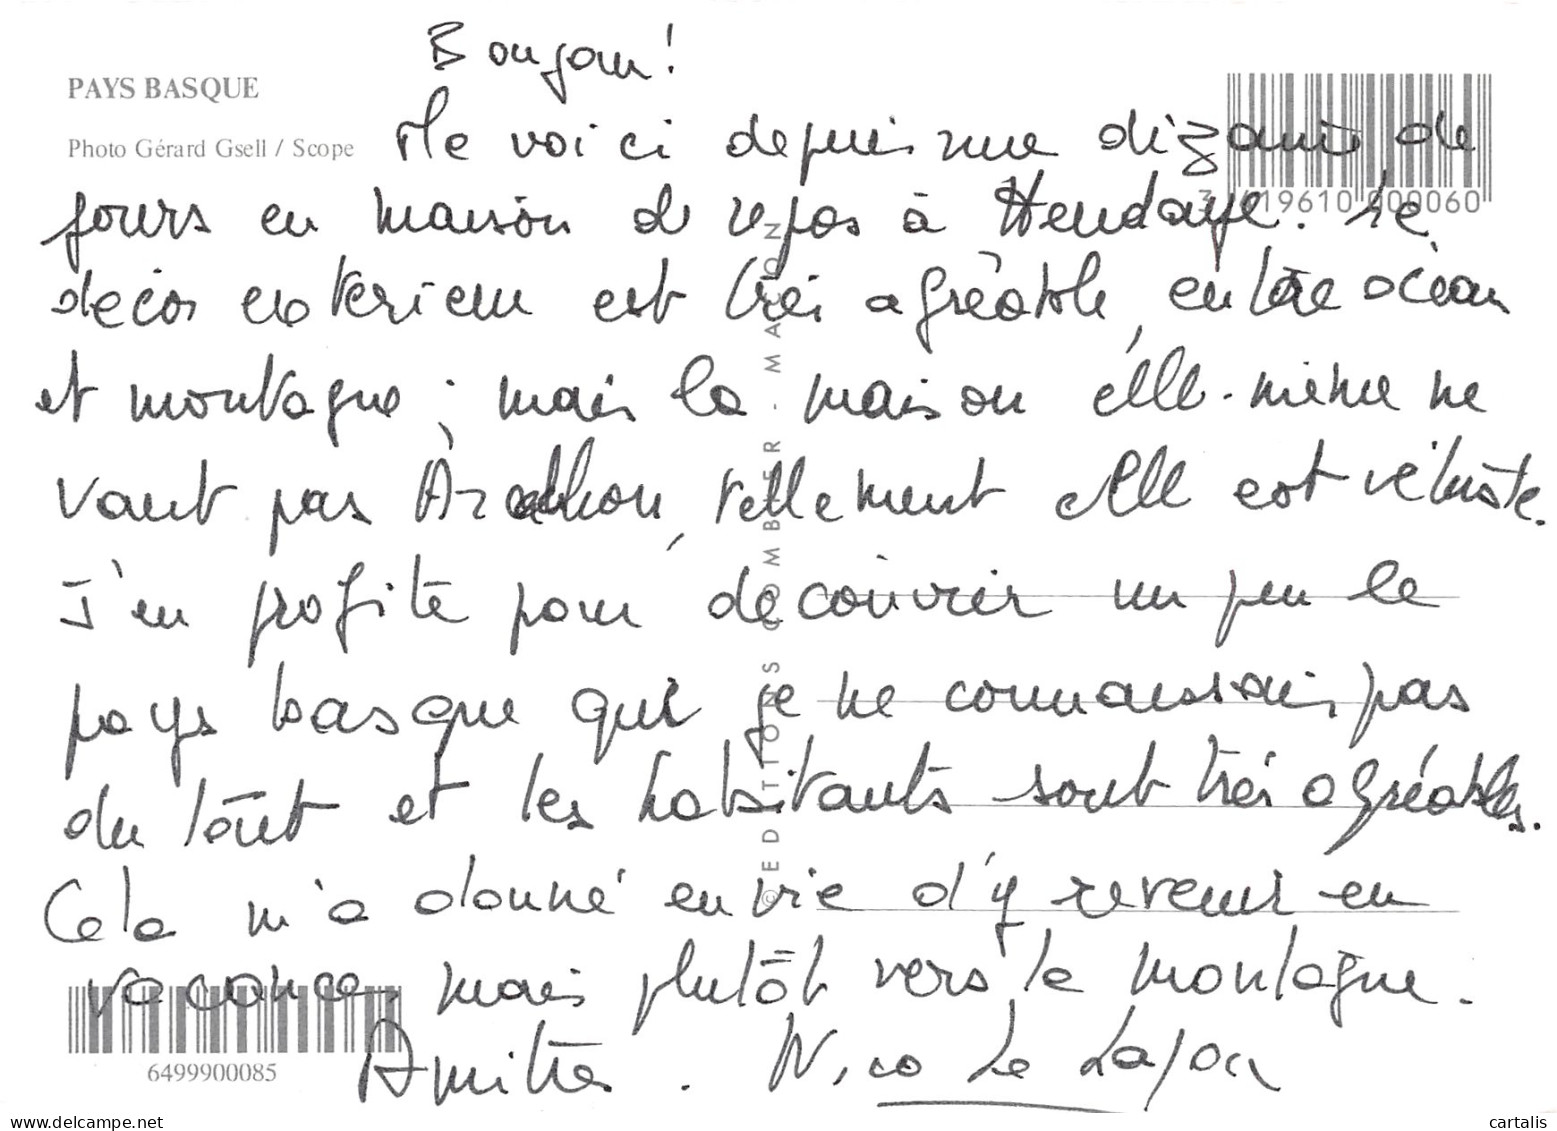 Bonjour!
PAYS BASQUE
Photo Gérard Gsell / Scope
Me voici depuis une dizaine de
jours en maison de repos à Hendaye. Le
décor exterieur est très agréable, entre océan
et montagne ; mais la maison elle-même ne
vaut pas Arcachon, tellement elle est vétuste.
J'en profite pour découvrir un peu le
pays basque que je ne connaissais pas
du tout et les habitants sont très agréables.
Cela m'a donné envie d'y revenir en
vacances, mais plutôt vers la montagne.
Amitiés. Nico Le
© EDITIONS COMBIER - MACON
6499900085
delcampe.net
cartalis